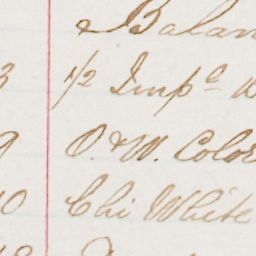 & Balan
3 1/2 Imp^d W
9 O. & W. Color
10 Chi White